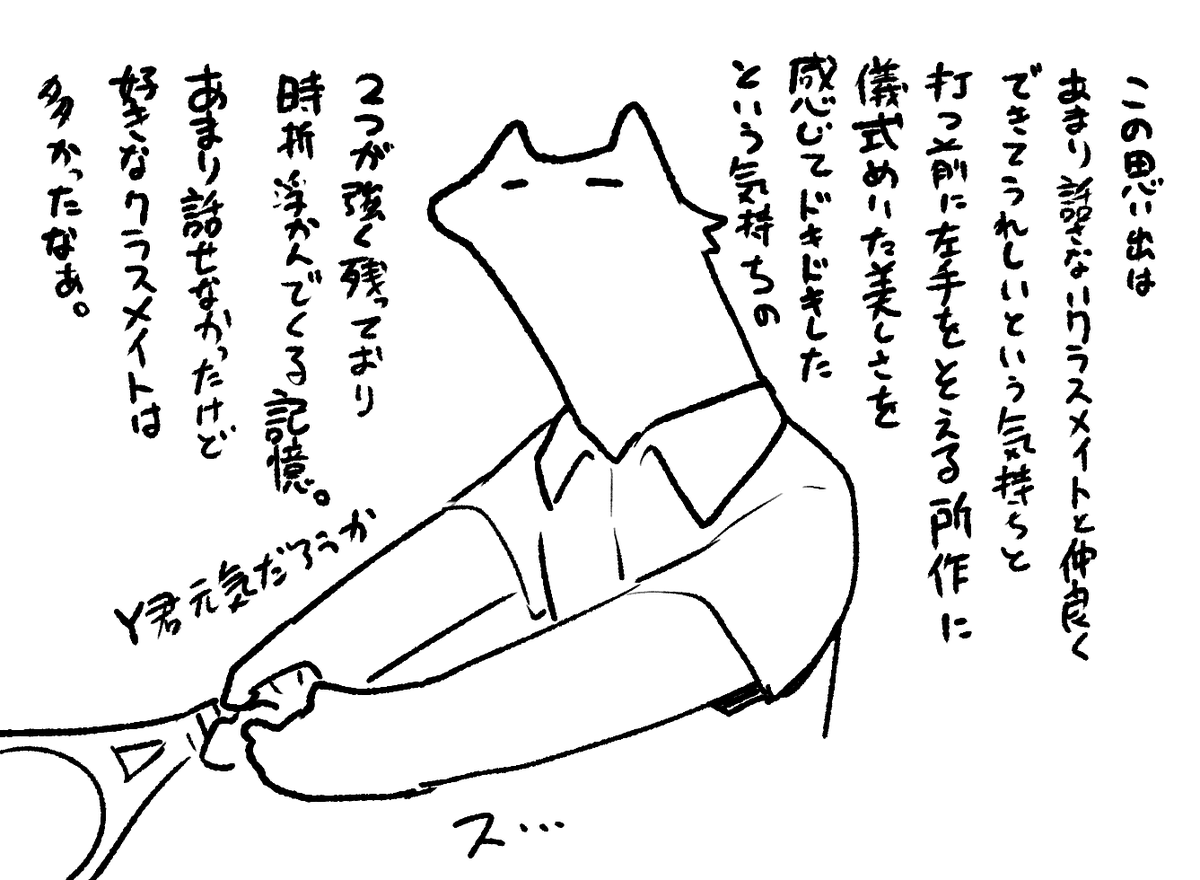 この思い出は
あまり話さないクラスメイトと仲良く
できてうれしいという気持ちと
打つ前に左手をそえる所作に
儀式めいた美しさを
感じてドキドキした
という気持ちの
2つが強く残っており
時折浮かんでくる記憶。
あまり話せなかったけど
好きなクラスメイトは
多かったなぁ。
Y君元気だろうか
ス…